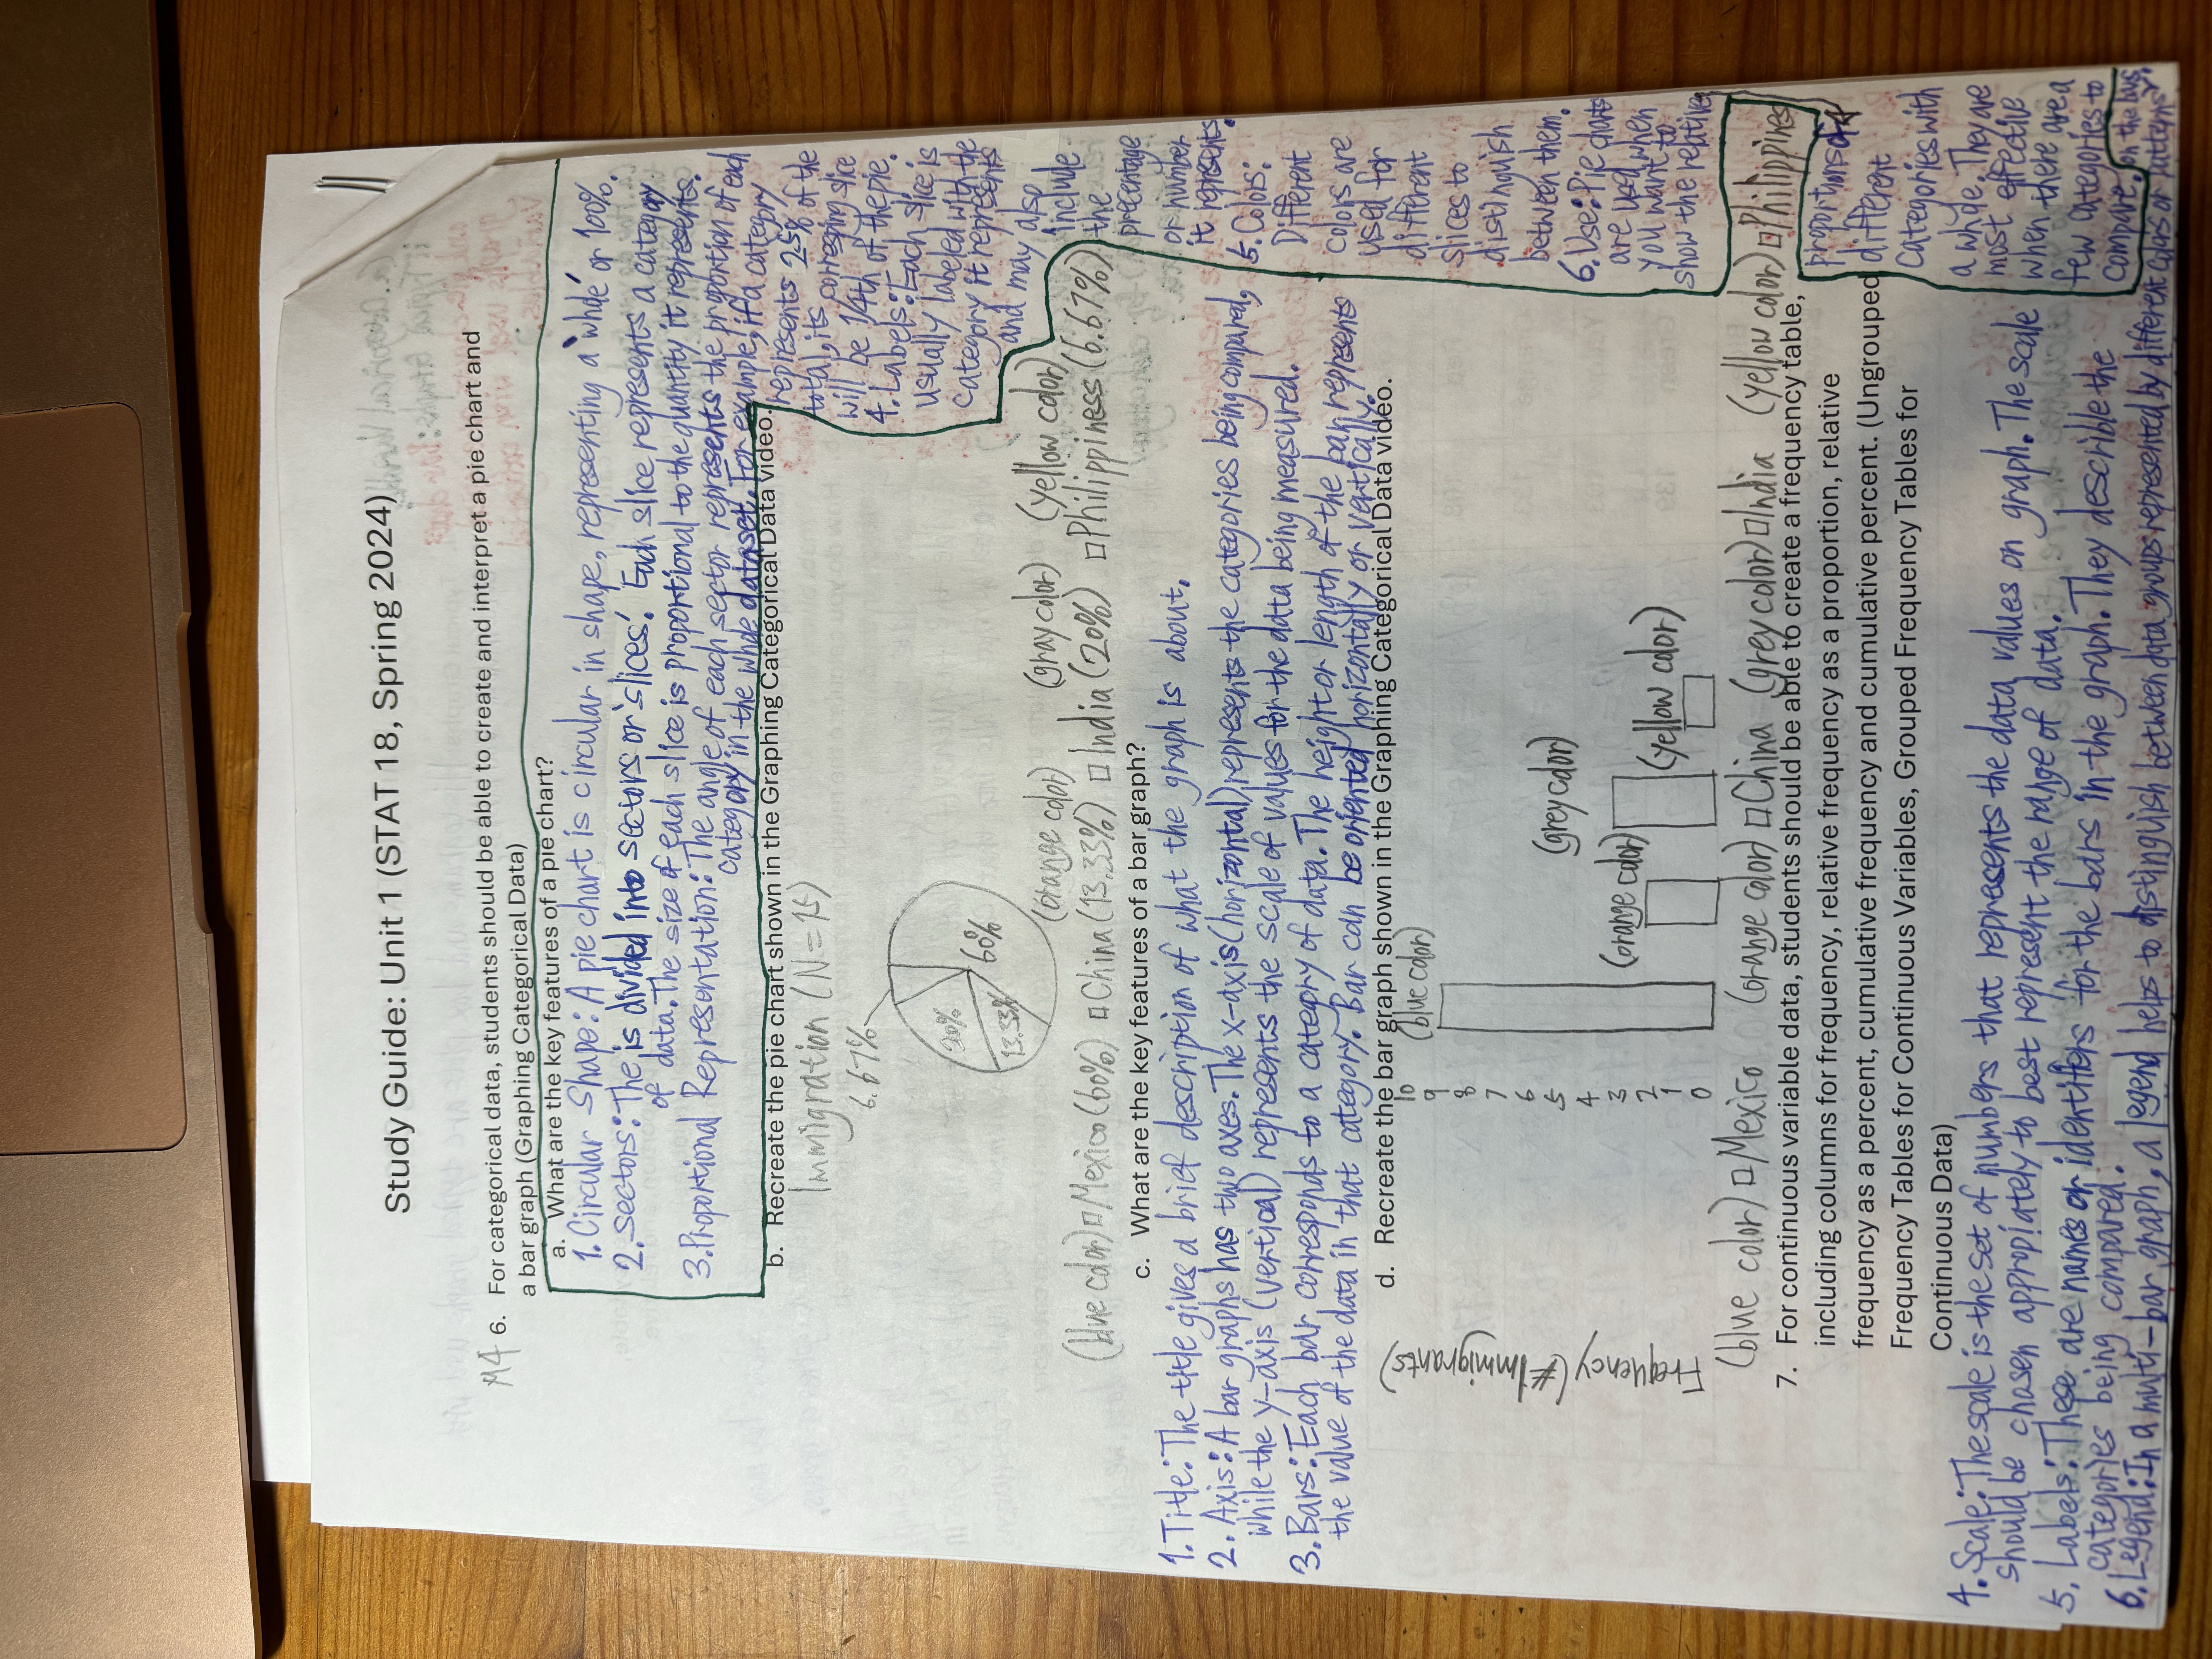 Study Guide: Unit 1 (STAT 18, Spring 2024)
M4 6. For categorical data, students should be able to create and interpret a pie chart and
a bar graph (Graphing Categorical Data)
a. What are the key features of a pie chart?
1. Circular Shape: A pie chart is circular in shape, representing a 'whole' or 100%.
2. Sectors: The is divided into sectors or 'slices'. Each slice represents a category
of data. The size of each slice is proportional to the quantity it represents.
3. Proportional Representation: The angle of each sector represents the proportion of each
category in the whole dataset. For example, if a category
represents 25% of the
total, its corresping slice
will be 1/4th of the pie.
4. Labels: Each slice is
usually labeled with the
category it represents
and may also
include
the
precentage
or number
it represents.
5. Colors:
Different
colors are
used for
different
slices to
distinguish
between them.
6. Use: Pie charts
are used when
you want to
show the relative
proportions of
different
categories with
a whole. They are
most effective
when there are a
few categories to
compare.
b. Recreate the pie chart shown in the Graphing Categorical Data video.
Immigration (N=15)
6.67%
20%
60%
13.33%
(orange color) (gray color) (yellow color)
(blue color) □ Mexico (60%) □ China (13.33%) □ India (20%) □ Philippiness (6.67%)
c. What are the key features of a bar graph?
1. Title: The title gives a brief description of what the graph is about.
2. Axis: A bar graphs has two axes. The x-axis (horizontal) represents the categories being compared,
while the y-axis (vertical) represents the scale of values for the data being measured.
3. Bars: Each bar corresponds to a category of data. The height or length of the bar represents
the value of the data in that category. Bar can be oriented horizontally or vertically.
d. Recreate the bar graph shown in the Graphing Categorical Data video.
Frequency (# Immigrants)
10
9
8
7
6
5
4
3
2
1
0
(blue color)
(orange color)
(grey color)
(yellow color)
(blue color) □ Mexico (orange color) □ China (grey color) □ India (yellow color) □ Philippines
7. For continuous variable data, students should be able to create a frequency table,
including columns for frequency, relative frequency as a proportion, relative
frequency as a percent, cumulative frequency and cumulative percent. (Ungrouped
Frequency Tables for Continuous Variables, Grouped Frequency Tables for
Continuous Data)
4. Scale: The scale is the set of numbers that represents the data values on graph. The scale
should be chosen appropiately to best represent the range of data.
5. Labels: These are names or identifiers for the bars in the graph. They describle the
categories being compared.
6. Legend: In a multi-bar graph, a legend helps to distinguish between data groups represented by different colors or patterns
on the bars.